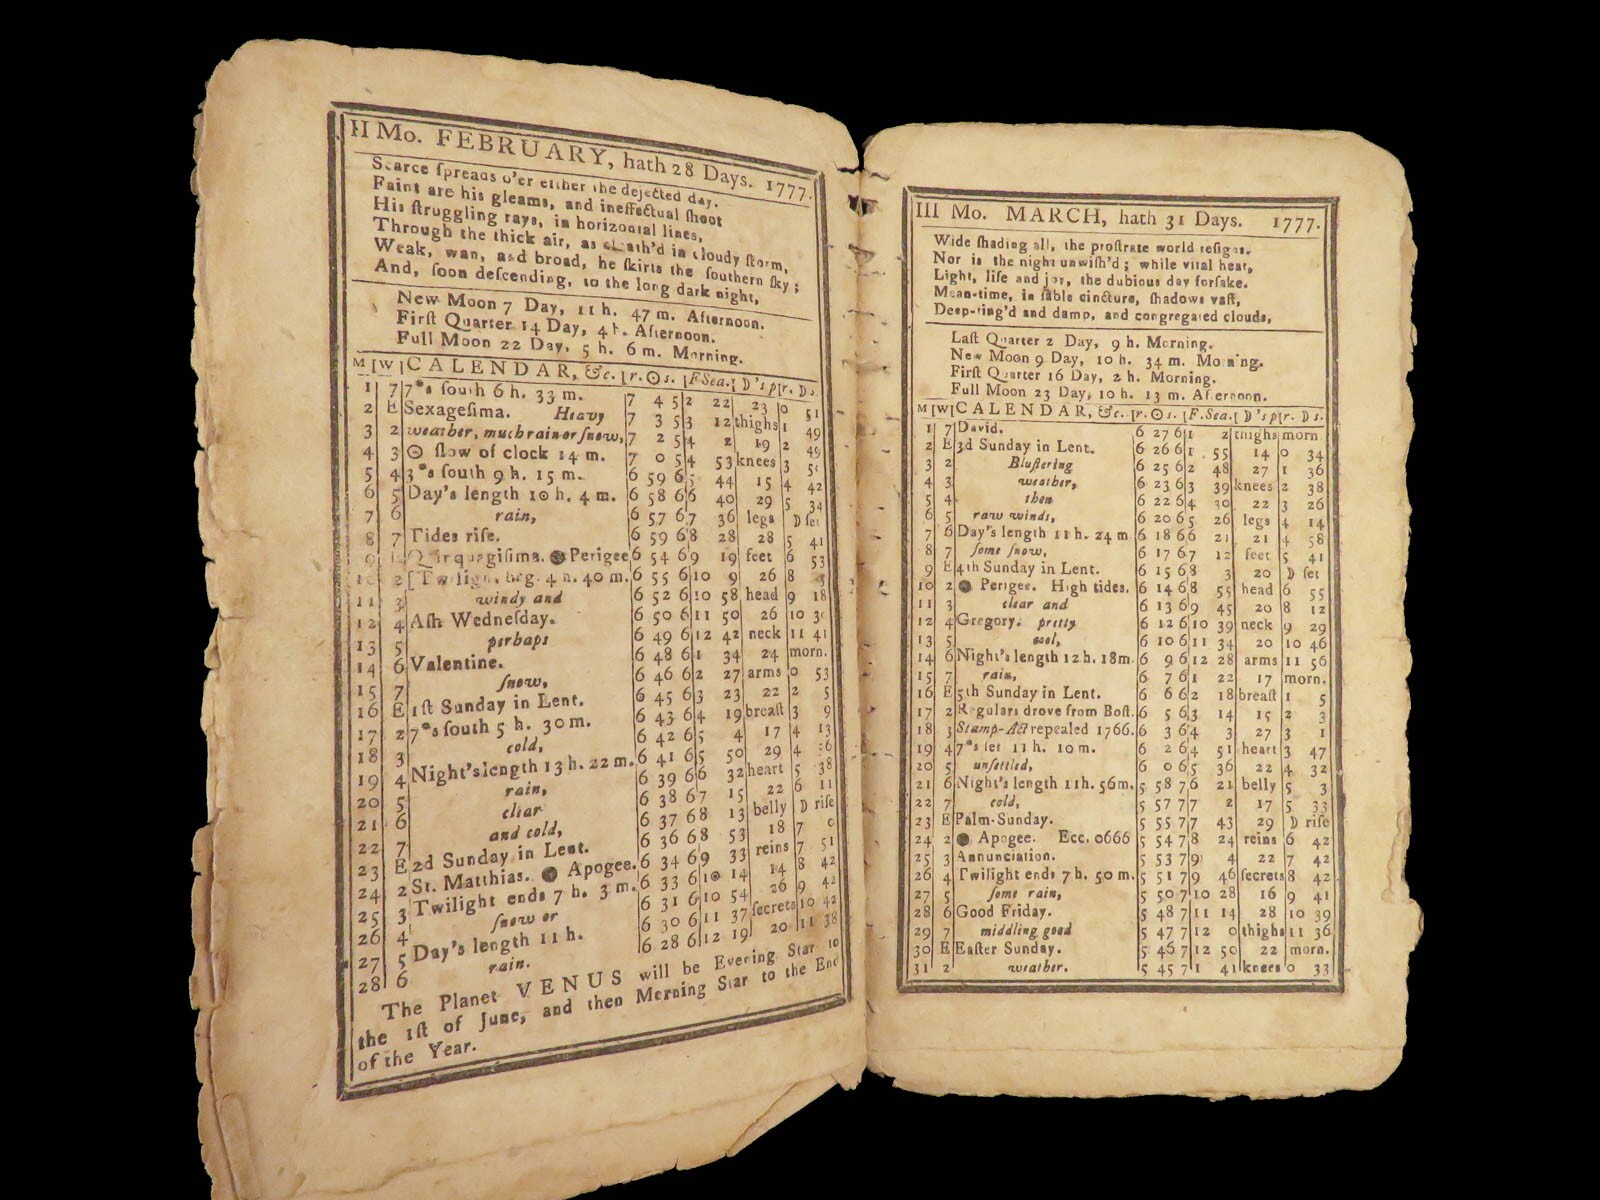 II Mo. FEBRUARY, hath 28 Days. 1777.
Scarce ſpreads o'er either the dejected day.
Faint are his gleams, and ineffectual ſhoot
His ſtruggling rays, in horizontal lines,
Through the thick air, as in cloudy ſtorm,
Weak, wan, and broad, he ſkirts the ſouthern ſky;
And, ſoon deſcending, to the long dark night,
New Moon 7 Day, 11 h. 47 m. Afternoon.
Firſt Quarter 14 Day, 4 h. Afternoon.
Full Moon 22 Day, 5 h. 6 m. Morning.
M W CALENDAR, &c. r. ☉ s. F Sea. ☽'s p r. ☽ s.
1 7 7*s ſouth 6 h. 33 m. 7 4 5 2 22 23 0 51
2 E Sexageſima. Heavy 7 3 5 3 12 thighs 1 49
3 2 weather, much rain or ſnow, 7 2 5 4 2 19 2 49
4 3 ☉ ſlow of clock 14 m. 7 0 5 4 53 knees 3
5 4 3*s ſouth 9 h. 15 m. 6 59 6 5 44 15 4 42
6 5 Day's length 10 h. 4 m. 6 58 6 6 40 29 5 34
7 6 rain, 6 57 6 7 36 legs ☽ ſet
8 7 Tides riſe. 6 59 6 8 28 28 5 41
9 Perigee 6 54 6 9 19 feet 6 53
2 [Twilight beg. 4 h. 40 m. 6 55 6 10 9 26 8 5
11 3 windy and 6 52 6 10 58 head 9 18
12 4 Aſh Wedneſday. 6 50 6 11 50 26 10
13 5 perhaps 6 49 6 12 42 neck 11 41
14 6 Valentine. 6 48 6 1 34 24 morn.
15 7 ſnow, 6 46 6 2 27 arms 0 53
16 E 1ſt Sunday in Lent. 6 45 6 3 23 22 2 5
17 2 7*s ſouth 5 h. 30 m. 6 43 6 4 19 breaſt 3 9
18 3 cold, 6 42 6 5 4 17 4 13
19 4 Night's length 13 h. 22 m. 6 41 6 5 50 29 4 56
20 5 rain, 6 39 6 6 32 heart 5 38
21 6 clear 6 38 6 7 15 22 6 11
22 7 and cold, 6 37 6 8 13 belly ☽ riſe
23 E 2d Sunday in Lent. 6 36 6 8 53 18 7 0
24 2 St. Matthias. ● Apogee. 6 34 6 9 33 reins 7 51
25 3 Twilight ends 7 h. 3 m. 6 33 6 10 14 14 8 42
26 4 ſnow or 6 31 6 10 54 26 9 42
27 5 Day's length 11 h. 6 30 6 11 37 ſecrets 10 42
28 6 rain. 6 28 6 12 19 20 11 38
The Planet VENUS will be Evening Star to
the 1ſt of June, and then Morning Star to the End
of the Year.
III Mo. MARCH, hath 31 Days. 1777.
Wide ſhading all, the proſtrate world reſigns.
Nor is the night unwiſh'd; while vital heat,
Light, life and joy, the dubious day forſake.
Mean-time, in ſable cincture, ſhadows vaſt,
Deep-ting'd and damp, and congregated clouds,
Laſt Quarter 2 Day, 9 h. Morning.
New Moon 9 Day, 10 h. 34 m. Morning.
Firſt Quarter 16 Day, 2 h. Morning.
Full Moon 23 Day, 10 h. 13 m. Afternoon.
M W CALENDAR, &c. r. ☉ s. F. Sea. ☽'s p r. ☽ s.
1 7 David. 6 27 6 1 2 thighs morn
2 E 3d Sunday in Lent. 6 26 6 1 55 14 0 34
3 2 Bluſtering 6 25 6 2 48 27 1 36
4 3 weather, 6 23 6 3 39 knees 2 38
5 4 then 6 22 6 4 30 22 3 26
6 5 raw winds, 6 20 6 5 26 legs 4 14
7 6 Day's length 11 h. 24 m. 6 18 6 6 21 21 4 58
8 7 ſome ſnow, 6 17 6 7 12 feet 5 41
9 E 4th Sunday in Lent. 6 15 6 8 3 20 ☽ ſet
10 2 ● Perigee. High tides. 6 14 6 8 55 head 6 55
11 3 clear and 6 13 6 9 45 20 8 12
12 4 Gregory. pretty 6 12 6 10 39 neck 9 29
13 5 cool, 6 10 6 11 34 20 10 46
14 6 Night's length 12 h. 18 m. 6 9 6 12 28 arms 11 56
15 7 rain, 6 7 6 1 22 17 morn.
16 E 5th Sunday in Lent. 6 6 6 2 18 breaſt 1 5
17 2 Regulars drove from Boſt. 6 5 6 3 14 15 2 3
18 3 Stamp-Act repealed 1766. 6 3 6 4 3 27 3 1
19 4 7*s ſet 11 h. 10 m. 6 2 6 4 51 heart 3 47
20 5 unſettled, 6 0 6 5 36 22 4 32
21 6 Night's length 11h. 56m. 5 58 7 6 21 belly 5 3
22 7 cold, 5 57 7 7 2 17 5 33
23 E Palm-Sunday. 5 55 7 7 43 29 ☽ riſe
24 2 ● Apogee. Ecc. 0666 5 54 7 8 24 reins 6 42
25 3 Annunciation. 5 53 7 9 4 22 7 42
26 4 Twilight ends 7 h. 50 m. 5 51 7 9 46 ſecrets 8 42
27 5 ſome rain, 5 50 7 10 28 16 9 41
28 6 Good Friday. 5 48 7 11 14 28 10 39
29 7 middling good 5 47 7 12 0 thighs 11 36
30 E Eaſter Sunday. 5 46 7 12 50 22 morn.
31 2 weather. 5 45 7 1 41 knees 0 33